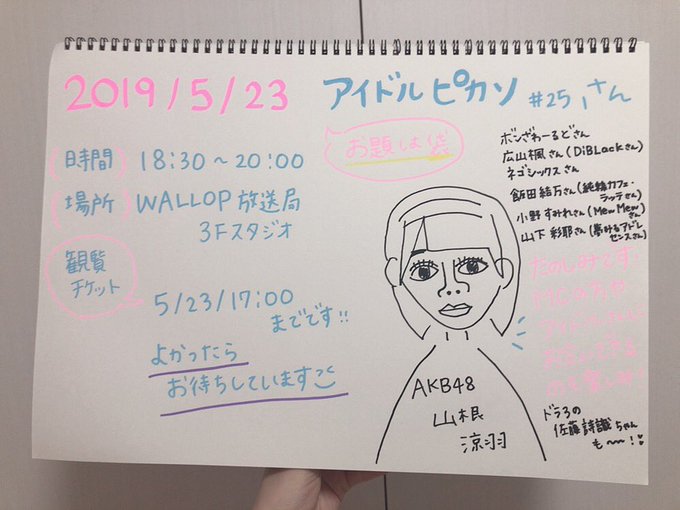 2019/5/23
アイドルピカソ #25 さん
お題は
時間 18:30～20:00
場所 WALLOP放送局
3Fスタジオ
観覧
チケット
5/23/17:00
までです!!
よかったら
お待ちしています
ボンざわーるどさん
広山楓さん(DiBLackさん)
ネゴシックスさん
飯田結万さん(純情カフェ・
ラッテさん)
小野すみれさん(MewMew
さん)
山下彩耶さん(夢みるアドレ
センスさん)
たのしみです!
AKB48
山根
涼羽
ドラ3の
佐藤詩識ちゃん
も〜〜!